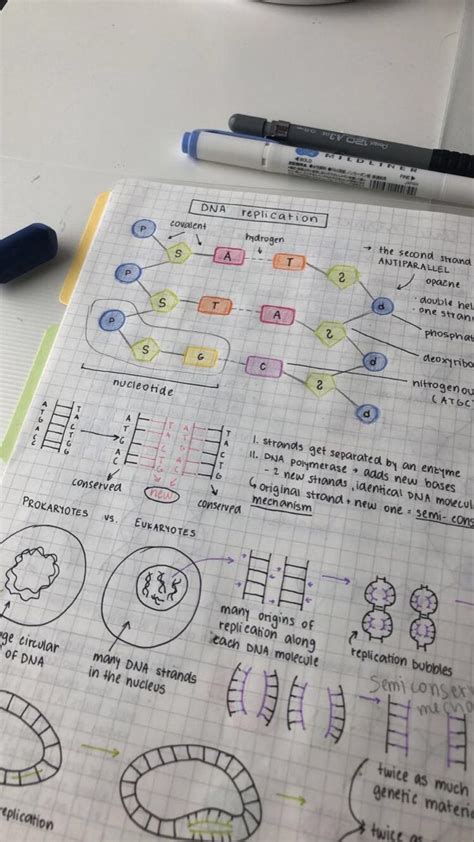 MILDLINER
DNA replication
P
covalent
S
A
hydrogen
T
S
→ the second strand
ANTIPARALLEL
P
S
T
A
S
d
· double hel
· one stran
phosphat
P
S
G
C
S
d
deoxyribo
nitrogenou
(ATGC
d
nucleotide
conserved
new
conserved
I. strands get separated by an enzyme
II. DNA polymerase → adds new bases
- 2 new strands, identical DNA molecul
↳ original strand + new one = semi-cons
mechanism
PROKARYOTES vs. EUKARYOTES
ge circular
of DNA
many DNA strands
in the nucleus
many origins of
replication along
each DNA molecule
replication bubbles
Semiconser
mecha
twice as much
genetic materia
→ twice as
replication